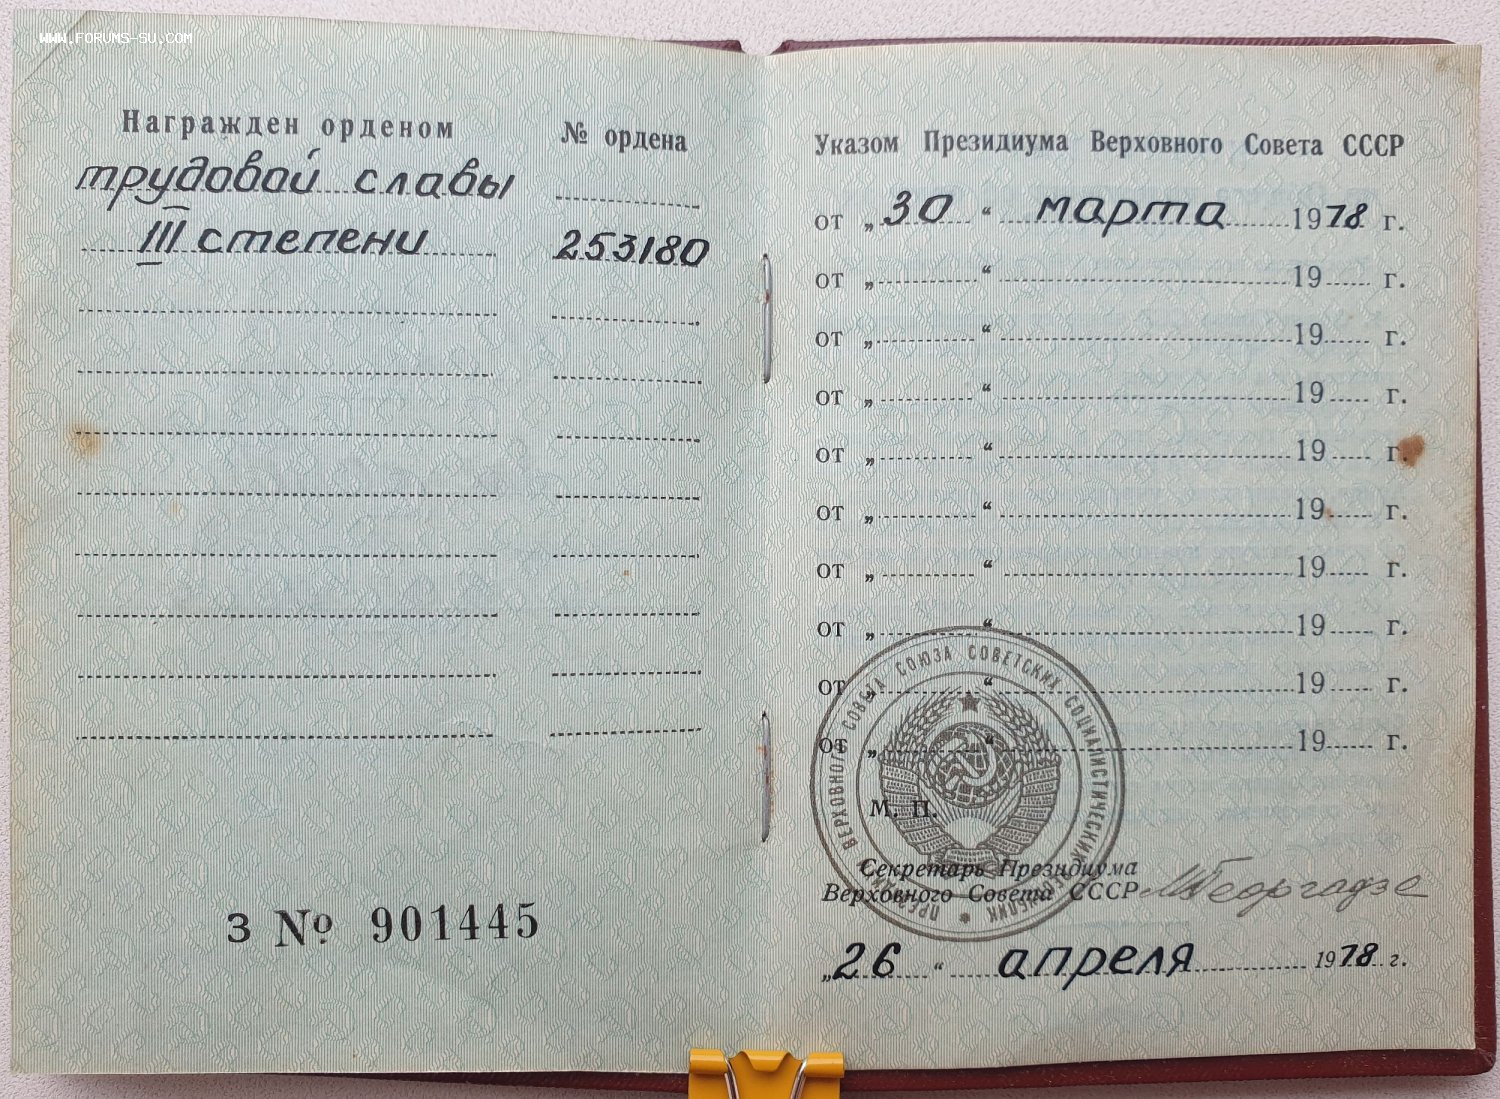 WWW.FORUMS-SU.COM
Награжден орденом № ордена
трудовой славы
III степени 253180
З № 901445
Указом Президиума Верховного Совета СССР
от „30“ марта 1978 г.
от „ “ 19 г.
от „ “ 19 г.
от „ “ 19 г.
от „ “ 19 г.
от „ “ 19 г.
от „ “ 19 г.
от „ “ 19 г.
от „ “ 19 г.
от „ “ 19 г.
ПРЕЗИДИУМ ВЕРХОВНОГО СОВЕТА СОЮЗА СОВЕТСКИХ СОЦИАЛИСТИЧЕСКИХ РЕСПУБЛИК
М. П.
Секретарь Президиума
Верховного Совета СССР МГеоргадзе
„26“ апреля 1978 г.